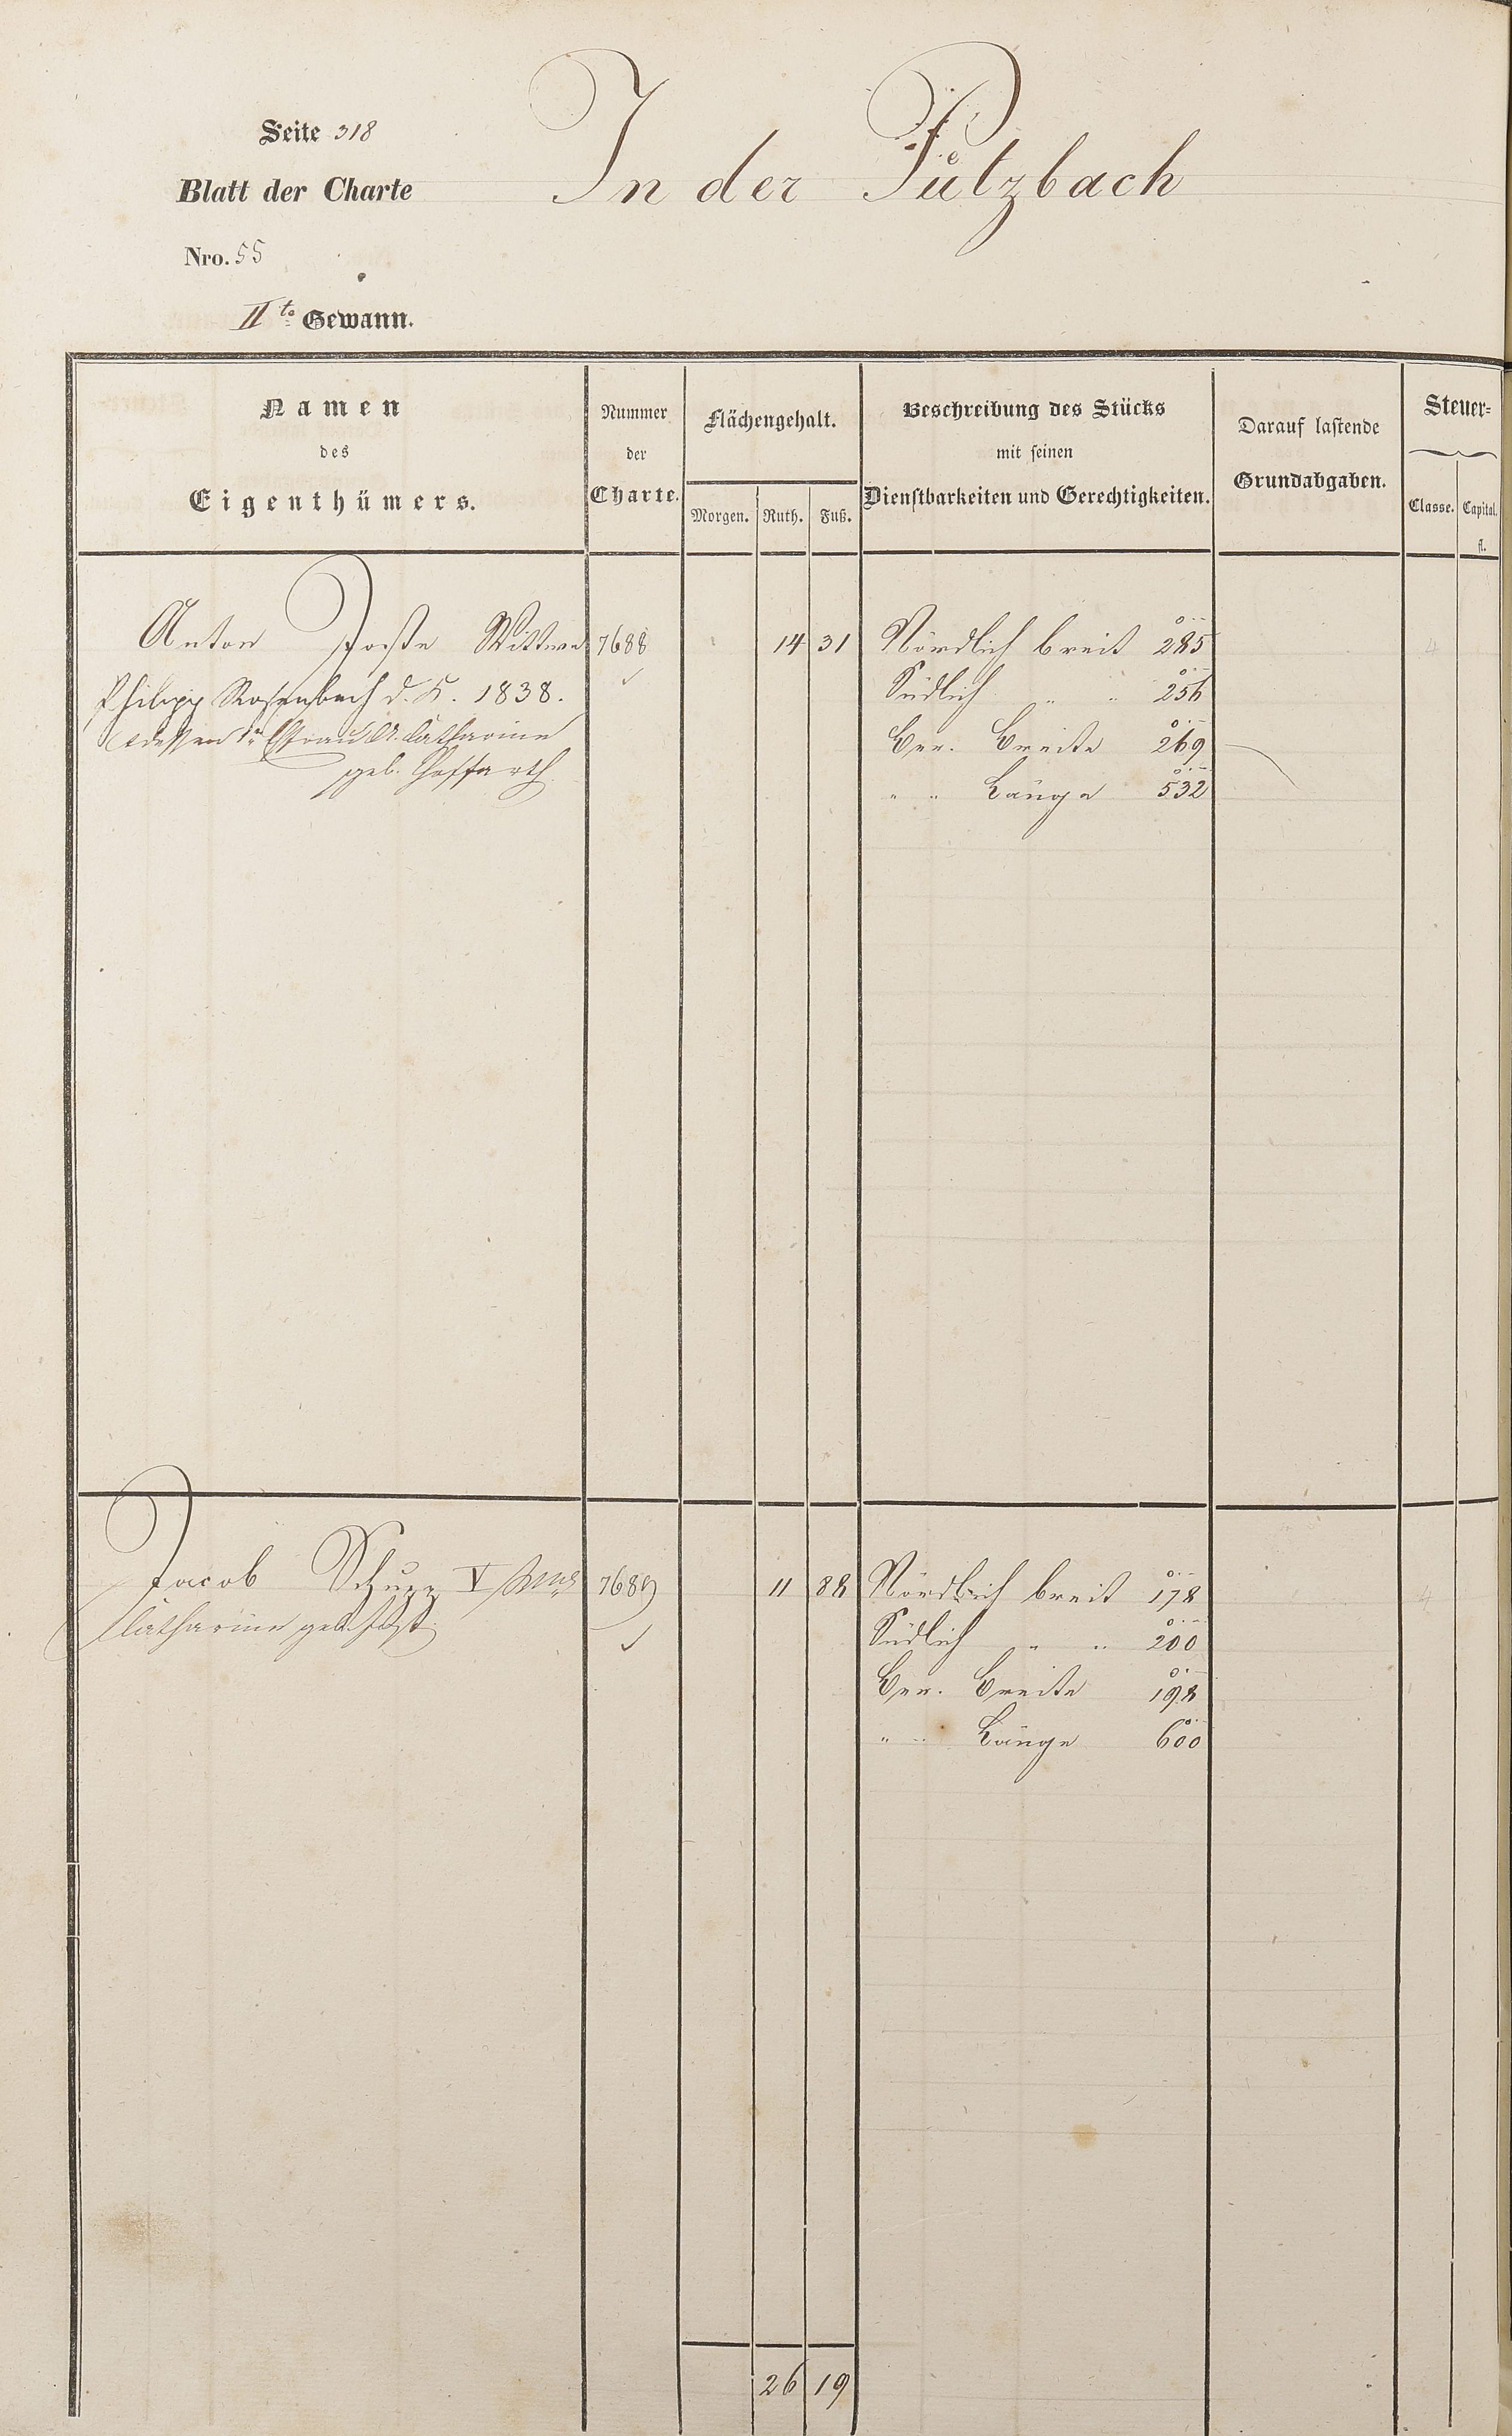 Seite 318
In der Pützbach
Blatt der Charte
Nro. 55
IIte Gewann.
Namen des Eigenthümers.
Nummer der Charte.
Flächengehalt.
Morgen. Ruth. Fuß.
Beschreibung des Stücks mit seinen Dienstbarkeiten und Gerechtigkeiten.
Darauf lastende Grundabgaben.
Steuer=
Classe. Capital.
fl.
Anton Wittwe 7688 14 31 Nördlich breit 285 4
Philipp Rosenbach d. K. 1838. Südlich " " 256
dessen Frau A. Catharine Ber. Breite 269
geb. Hoffarth " " Länge 532
Jacob Schupp V 7689 11 88 Nördlich breit 178 4
Catharine geb. Südlich " " 200
Ber. Breite 198
" " Länge 600
26 19